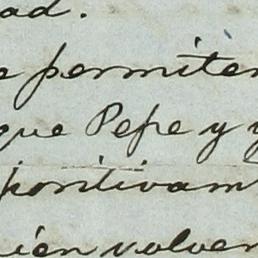 ad.
e permiten
que Pepe y y
positivam
ién volver